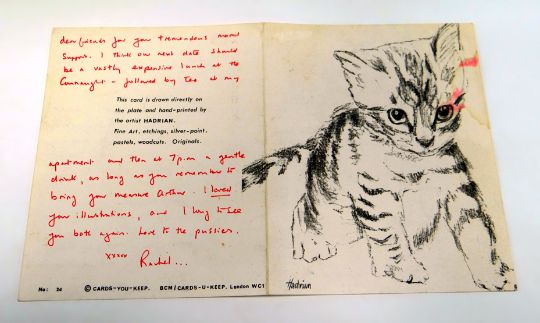 dear friends for your tremendous moral
support. I think our next date should
be a vastly expensive lunch at the
Connaught - followed by tea at my
This card is drawn directly on
the plate and hand-printed by
the artist HADRIAN.
Fine Art, etchings, silver-point,
pastels, woodcuts. Originals.
apartment and then at 7p.m a gentle
drink, as long as you remember to
bring your measure Arthur. I loved
your illustrations, and I long to see
you both again. Love to the pussies.
xxxxx
Rachel...
No: 24 © CARDS-YOU-KEEP. BCM/CARDS-U-KEEP. London WC1
Hadrian